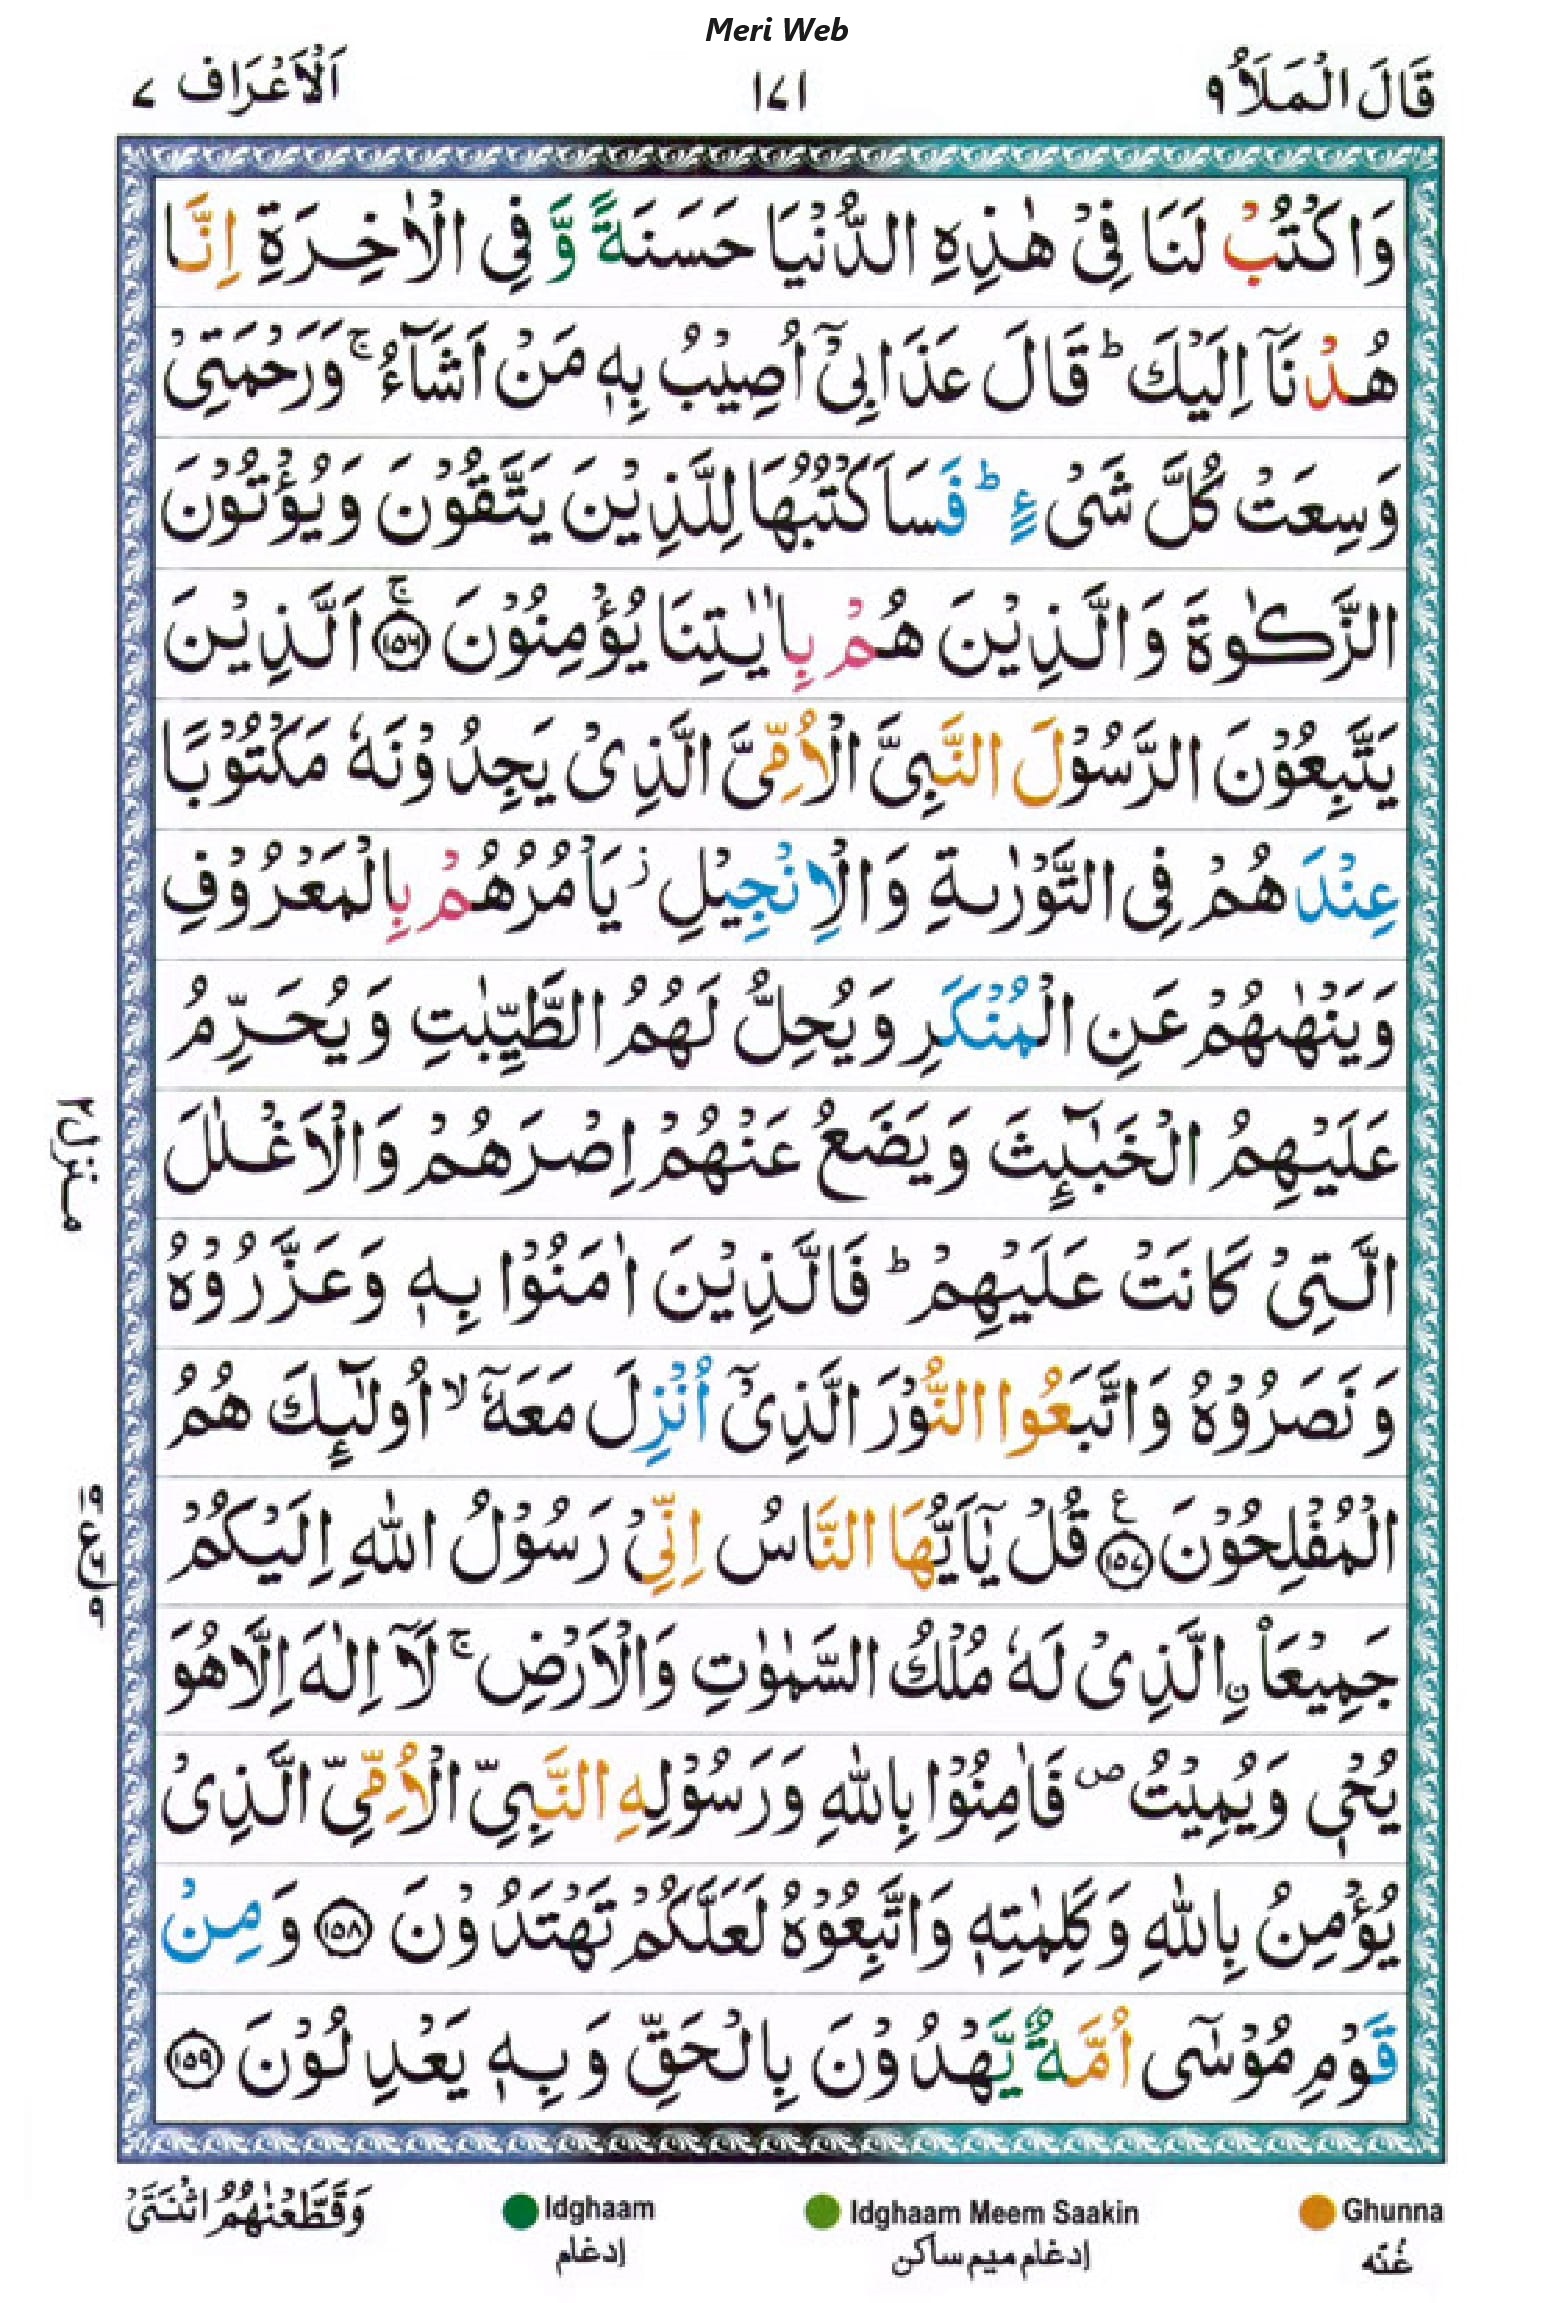 Meri Web
قَالَ الْمَلَاُ ٩
١٧١
اَلْاَعْرَاف ٧
وَاكْتُبْ لَنَا فِیْ هٰذِهِ الدُّنْیَا حَسَنَةً وَّ فِی الْاٰخِرَةِ اِنَّا
هُدْنَاۤ اِلَیْكَ ؕ قَالَ عَذَابِیْۤ اُصِیْبُ بِهٖ مَنْ اَشَآءُ ۚ وَرَحْمَتِیْ
وَسِعَتْ كُلَّ شَیْءٍ ؕ فَسَاَكْتُبُهَا لِلَّذِیْنَ یَتَّقُوْنَ وَیُؤْتُوْنَ
الزَّكٰوةَ وَالَّذِیْنَ هُمْ بِاٰیٰتِنَا یُؤْمِنُوْنَ ۚ ﴿١٥٦﴾ اَلَّذِیْنَ
یَتَّبِعُوْنَ الرَّسُوْلَ النَّبِیَّ الْاُمِّیَّ الَّذِیْ یَجِدُوْنَهٗ مَكْتُوْبًا
عِنْدَهُمْ فِی التَّوْرٰىةِ وَالْاِنْجِیْلِ ؗ یَاْمُرُهُمْ بِالْمَعْرُوْفِ
وَیَنْهٰىهُمْ عَنِ الْمُنْكَرِ وَیُحِلُّ لَهُمُ الطَّیِّبٰتِ وَیُحَرِّمُ
عَلَیْهِمُ الْخَبٰٓىِٕثَ وَیَضَعُ عَنْهُمْ اِصْرَهُمْ وَالْاَغْلٰلَ
الَّتِیْ كَانَتْ عَلَیْهِمْ ؕ فَالَّذِیْنَ اٰمَنُوْا بِهٖ وَعَزَّرُوْهُ
وَنَصَرُوْهُ وَاتَّبَعُوا النُّوْرَ الَّذِیْۤ اُنْزِلَ مَعَهٗۤ ۙ اُولٰٓىِٕكَ هُمُ
الْمُفْلِحُوْنَ ﴿١٥٧﴾ ع قُلْ یٰۤاَیُّهَا النَّاسُ اِنِّیْ رَسُوْلُ اللّٰهِ اِلَیْكُمْ
جَمِیْعَاْ ۨالَّذِیْ لَهٗ مُلْكُ السَّمٰوٰتِ وَالْاَرْضِ ۚ لَاۤ اِلٰهَ اِلَّا هُوَ
یُحْیٖ وَیُمِیْتُ ۪ فَاٰمِنُوْا بِاللّٰهِ وَرَسُوْلِهِ النَّبِیِّ الْاُمِّیِّ الَّذِیْ
یُؤْمِنُ بِاللّٰهِ وَكَلِمٰتِهٖ وَاتَّبِعُوْهُ لَعَلَّكُمْ تَهْتَدُوْنَ ﴿١٥٨﴾ وَمِنْ
قَوْمِ مُوْسٰۤی اُمَّةٌ یَّهْدُوْنَ بِالْحَقِّ وَبِهٖ یَعْدِلُوْنَ ﴿١٥٩﴾
منزل ٢
وَقَطَّعْنٰهُمُ اثْنَتَیْ
Idghaam
إدغام
Idghaam Meem Saakin
إدغام ميم ساكن
Ghunna
غُنّه